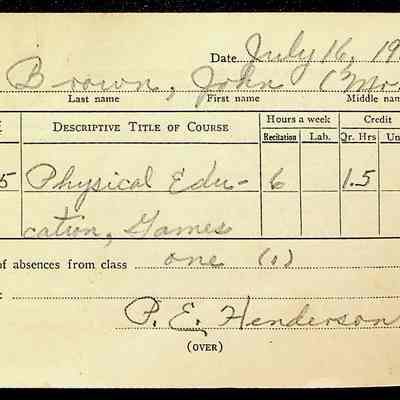 Date July 16, 19
Brown, John (Mr.
Last name First name Middle nam
DESCRIPTIVE TITLE OF COURSE Hours a week Credit
Recitation Lab. Qr. Hrs Un
5 Physical Edu- 6 1.5
cation, Games
of absences from class one (1)
P. E. Henderson
(OVER)